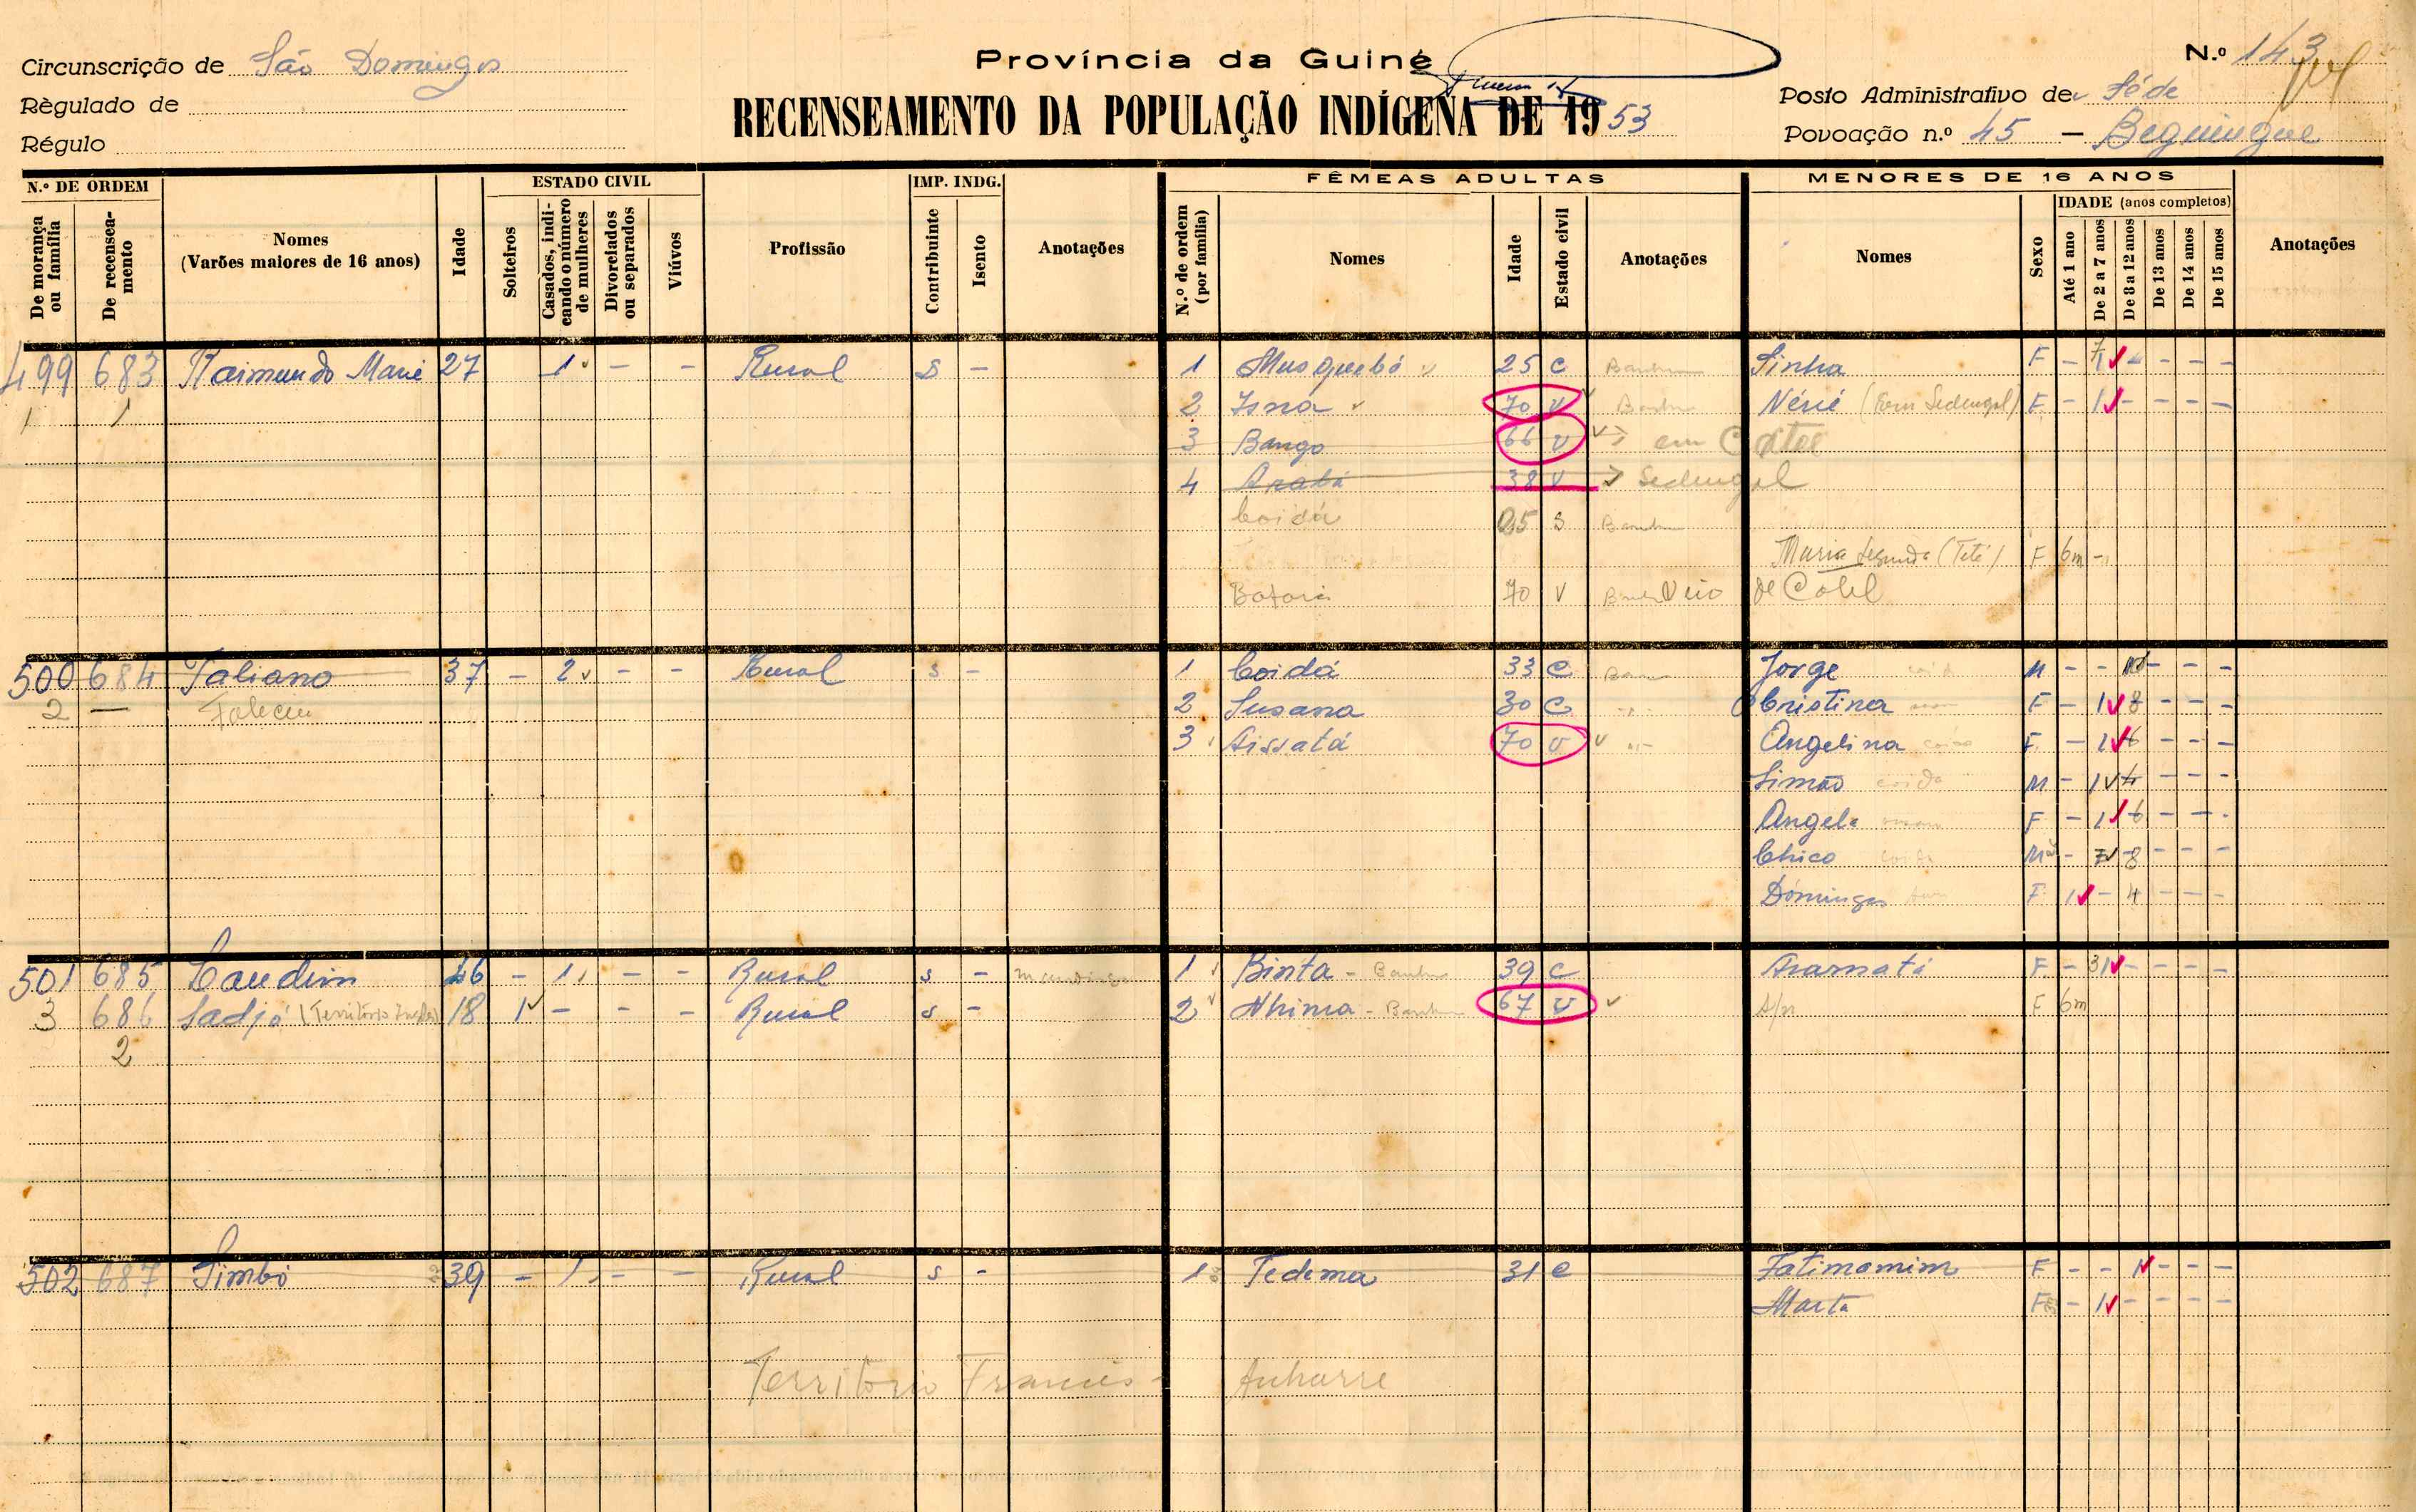 Província da Guiné
N.º 143
Circunscrição de São Domingos
Règulado de
Régulo
RECENSEAMENTO DA POPULAÇÃO INDÍGENA DE 1953
Posto Administrativo de Séde
Povoação n.º 45 — Beguingue
N.º DE ORDEM
De morança ou família
De recenseamento
Nomes
(Varões maiores de 16 anos)
Idade
ESTADO CIVIL
Solteiros
Casados, indicando o número de mulheres
Divorciados ou separados
Viúvos
Profissão
IMP. INDG.
Contribuinte
Isento
Anotações
FÊMEAS ADULTAS
N.º de ordem (por família)
Nomes
Idade
Estado civil
Anotações
MENORES DE 16 ANOS
Nomes
Sexo
IDADE (anos completos)
Até 1 ano
De 2 a 7 anos
De 8 a 12 anos
De 13 anos
De 14 anos
De 15 anos
Anotações
499 683 Raimundo Mané 27 1 - - Rural s - 1 Musquebó 25 c Sinha F - 1 - - -
1 1 2 Isna 70 v Nérié (Em Sedengal) F - 1 - - - -
3 Bango 66 v em
4 Arabá 38 v Sedengal
Coidá 25 s
Maria Segunda (Teté) F 6m -
70 V Veio de
500 684 Taliano 37 - 2 - - Rural s - 1 Coidá 33 c Jorge M - - - - -
2 — Faleceu 2 Susana 30 c Cristina F - 1 8 - - -
3 Aissatá 70 v Angelina F - 1 6 - - -
Simão M - 1 4 - - -
Angela F - 1 6 - - -
Chico M - 8 - - -
Domingas F 1 - 4 - - -
501 685 Landim 46 - 1 - - Rural s - 1 Binta 39 c F - 1 - - - -
3 686 Sadjó 18 1 - - - Rural s - 2 Nhima 67 v s/n F 6m
2
502 687 Simbó 39 - 1 - - Rural s - 1 Tedema 31 c Fatimamim F - - 1 - - -
Marta F - 1 - - - -
Territorio Francês - Anharre